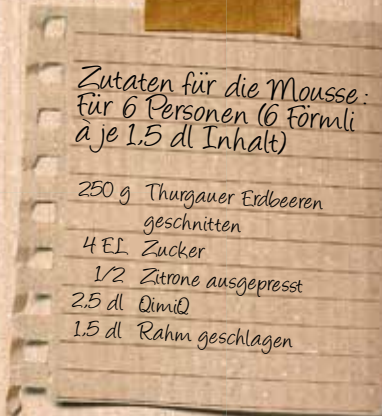 Zutaten für die Mousse:
Für 6 Personen (6 Förmli
à je 1,5 dl Inhalt)
250 g Thurgauer Erdbeeren
geschnitten
4 EL Zucker
1/2 Zitrone ausgepresst
2,5 dl QimiQ
1,5 dl Rahm geschlagen